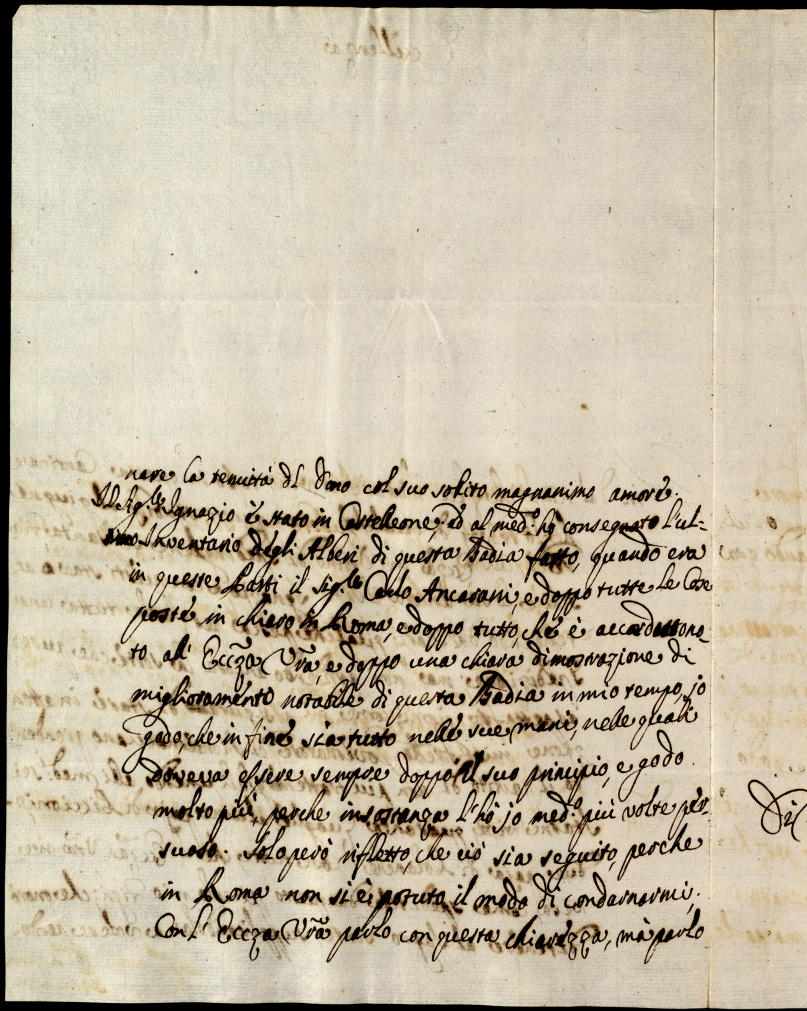 nare la tenuità del dono col suo solito magnanimo amore.
Il Sig.le Ignazio è stato in Castelleone, ed al med.o hò consegnato l'ul-
Inventario degli Alberi di questa Badia fatto, quando era
in queste Parti il Sig.le Carlo Ancarani, e doppo tutte le Cose
poste in chiaro in Roma, e doppo tutto, che è accordato
to all' Eccza Vrã, e doppo una chiara dimostrazione di
miglioramento notabile di questa Badia in mio tempo, jo
godo, che in fine sia tutto nelle sue mani, nelle quali
doveva essere sempre doppo il suo principio, e godo
molto più, perche in sostanza l'hò jo med.o più volte per-
suaso. Solo però rifletto, che ciò sia seguito, perche
in Roma non si è potuto il modo di condannarmi.
Con l' Eccza Vrã parlo con questa chiarezza, mà parlo
Di